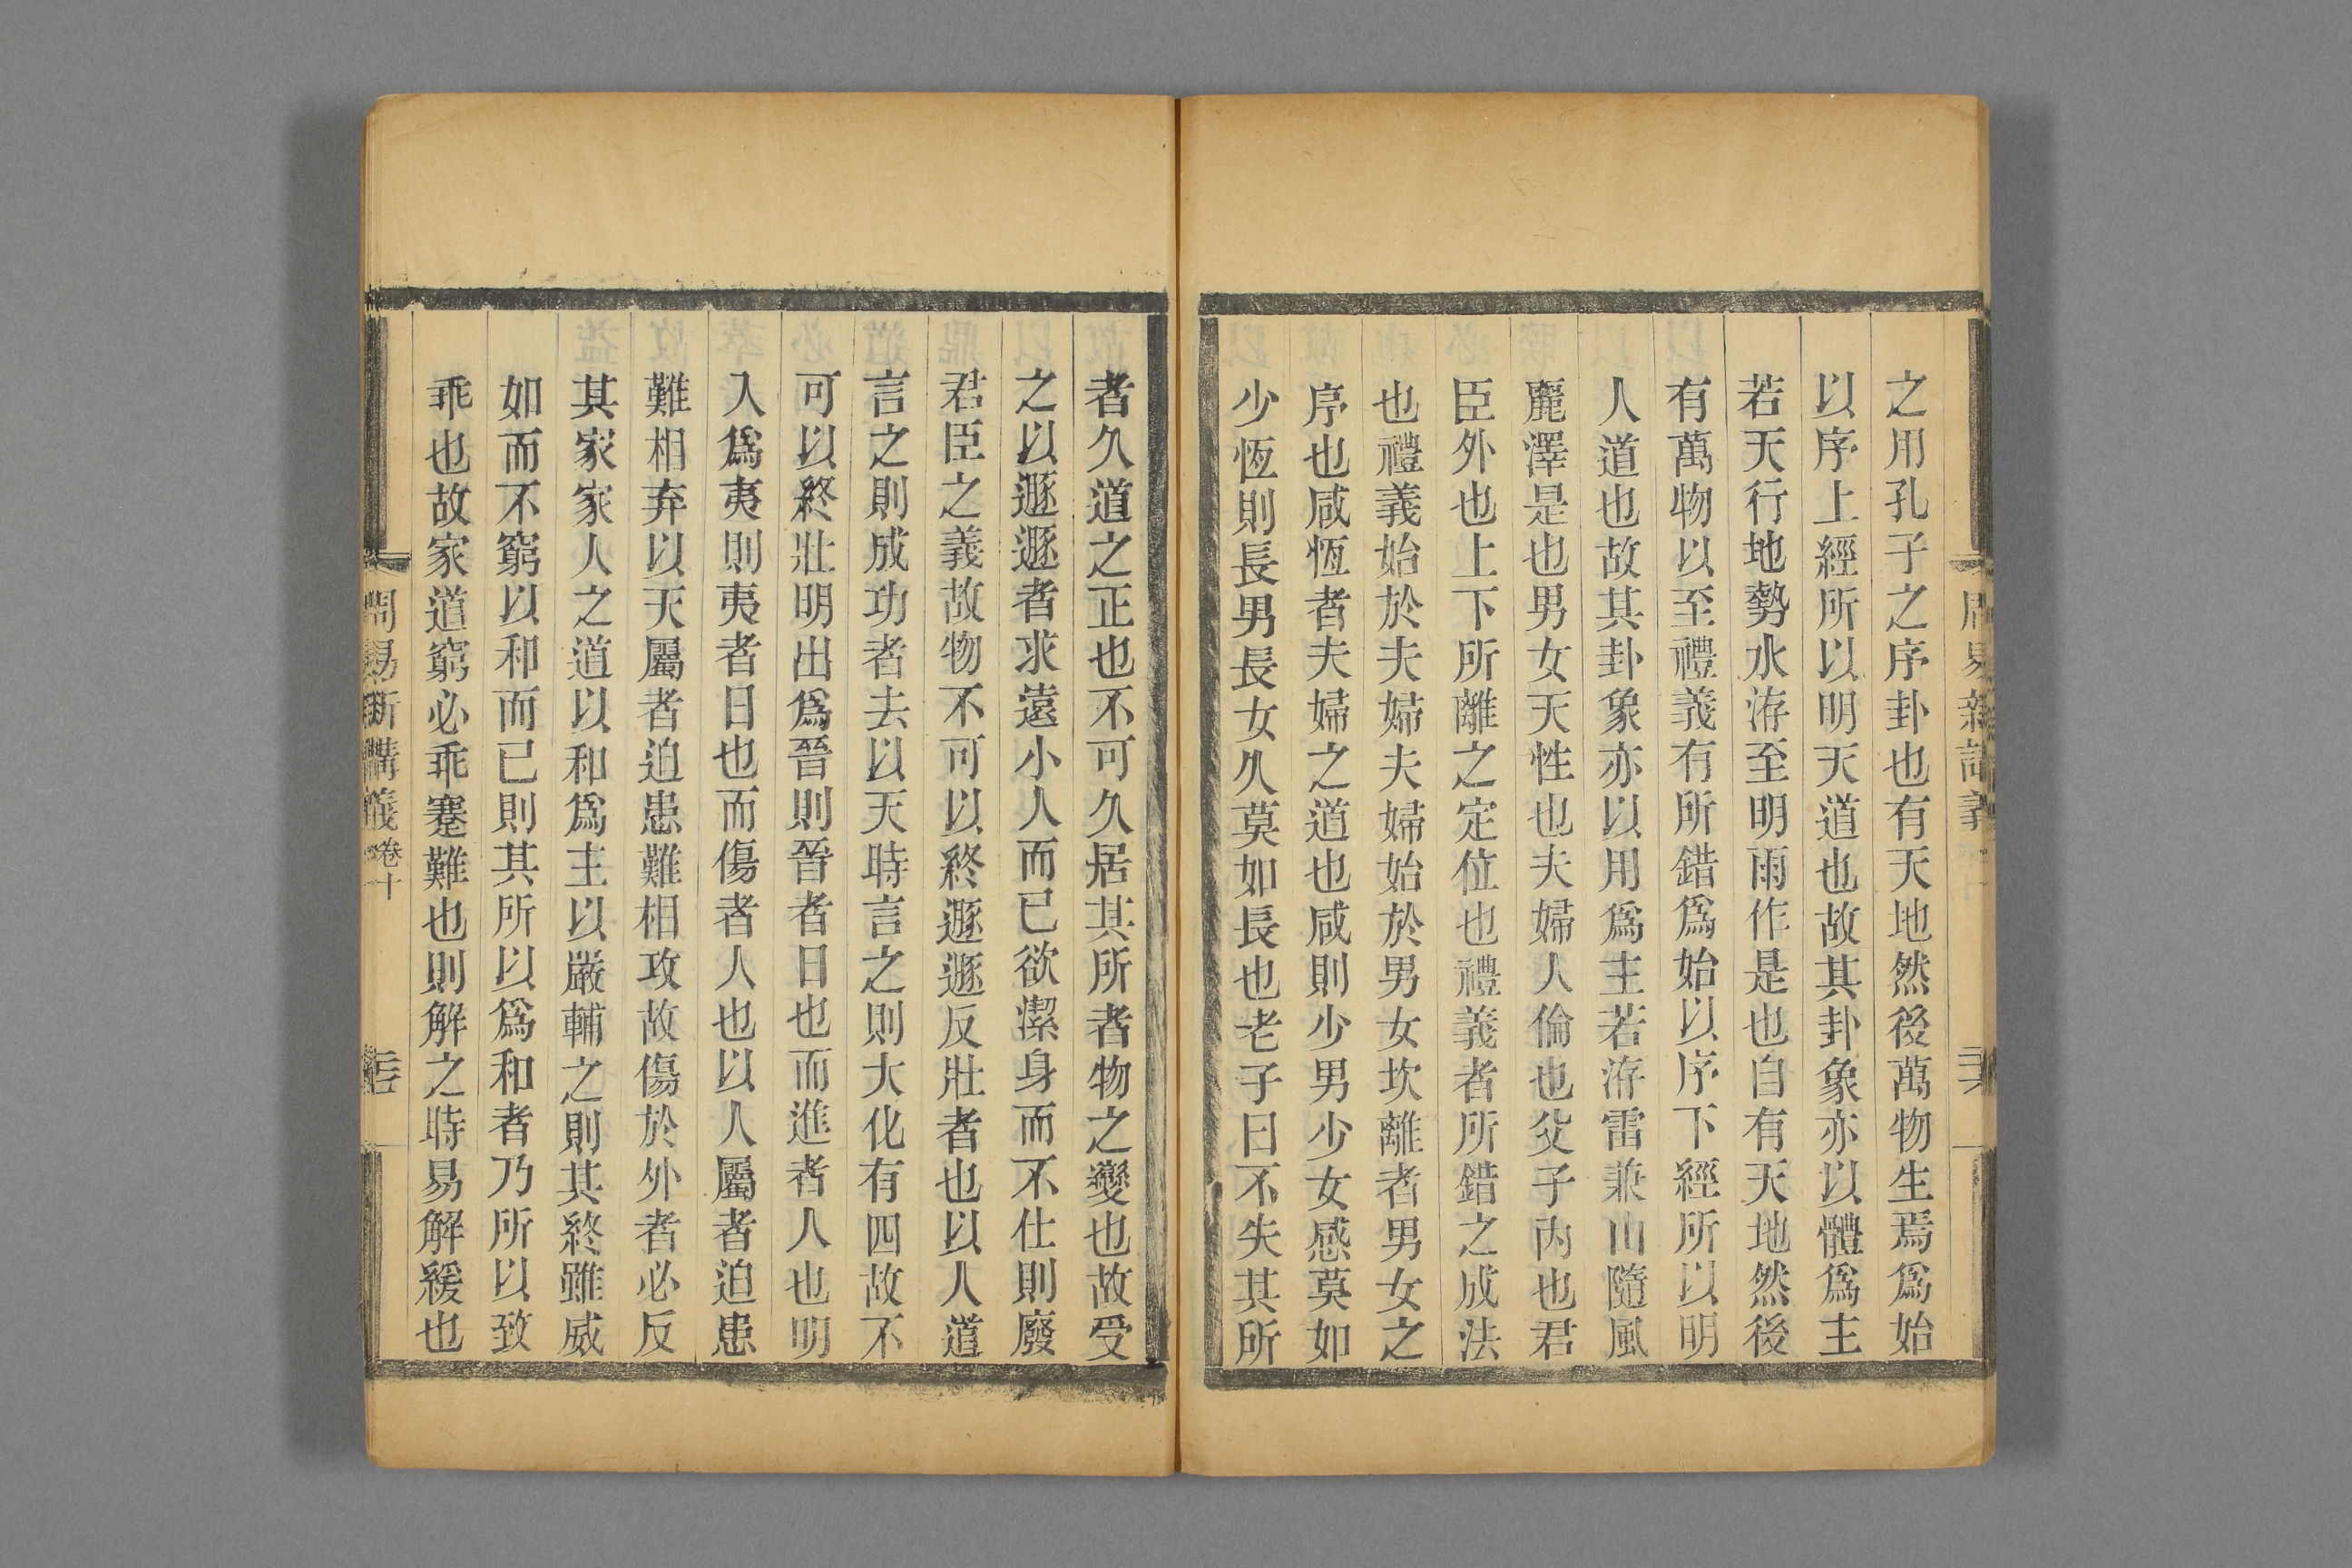 之用孔子之序卦也有天地然後萬物生焉爲始
以序上經所以明天道也故其卦象亦以體爲主
若天行地勢水洊至明雨作是也自有天地然後
有萬物以至禮義有所錯爲始以序下經所以明
人道也故其卦象亦以用爲主若洊雷兼山隨風
麗澤是也男女天性也夫婦人倫也父子内也君
臣外也上下所離之定位也禮義者所錯之成法
也禮義始於夫婦夫婦始於男女坎離者男女之
序也咸恆者夫婦之道也咸則少男少女感莫如
少恆則長男長女久莫如長也老子曰不失其所
者久道之正也不可久居其所者物之變也故受
之以遯遯者求遠小人而已欲潔身而不仕則廢
君臣之義故物不可以終遯遯反壯者也以人道
言之則成功者去以天時言之則大化有四故不
可以終壯明出爲晉則晉者日也而進者人也明
入爲夷則夷者日也而傷者人也以人屬者迫患
難相弃以天屬者迫患難相攻故傷於外者必反
其家家人之道以和爲主以嚴輔之則其終雖威
如而不窮以和而已則其所以爲和者乃所以致
乖也故家道窮必乖蹇難也則解之時易解緩也
周易新講義 卷十